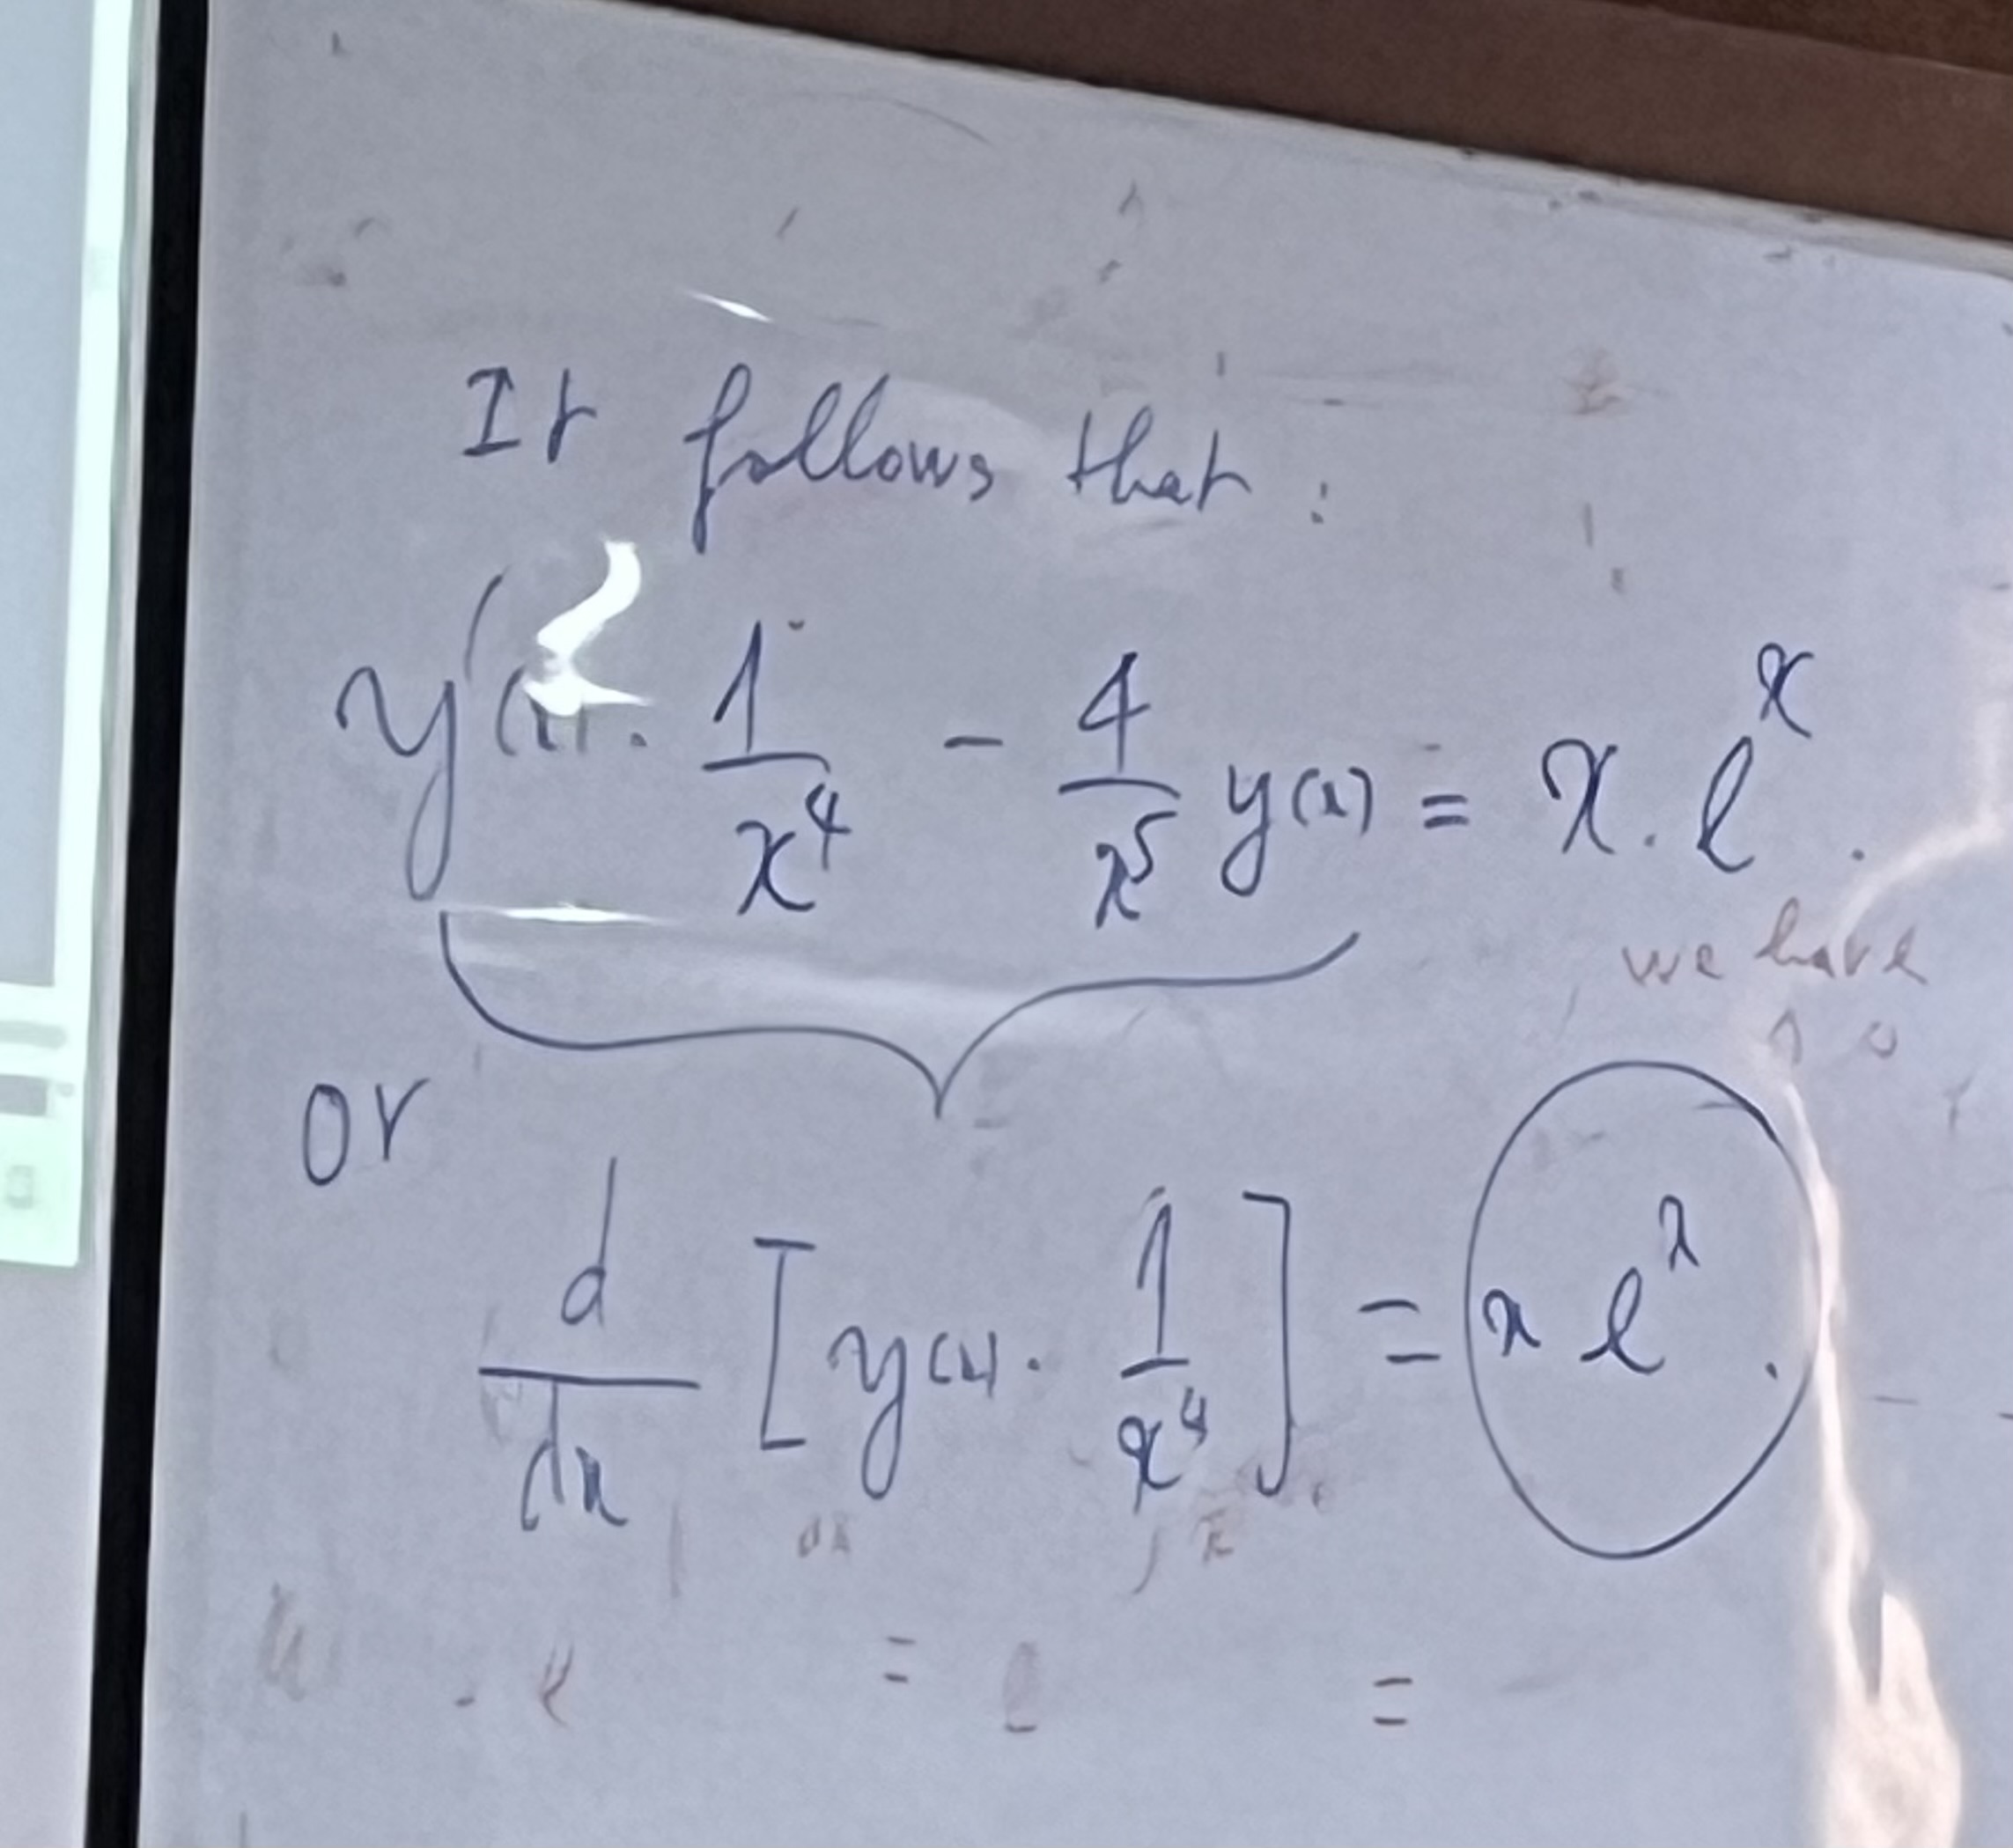 It follows that :
y'(x) · 1/x⁴ - 4/x⁵ y(x) = x · e^x .
we have
or
d/dx [ y(x) · 1/x⁴ ] = x e^x .